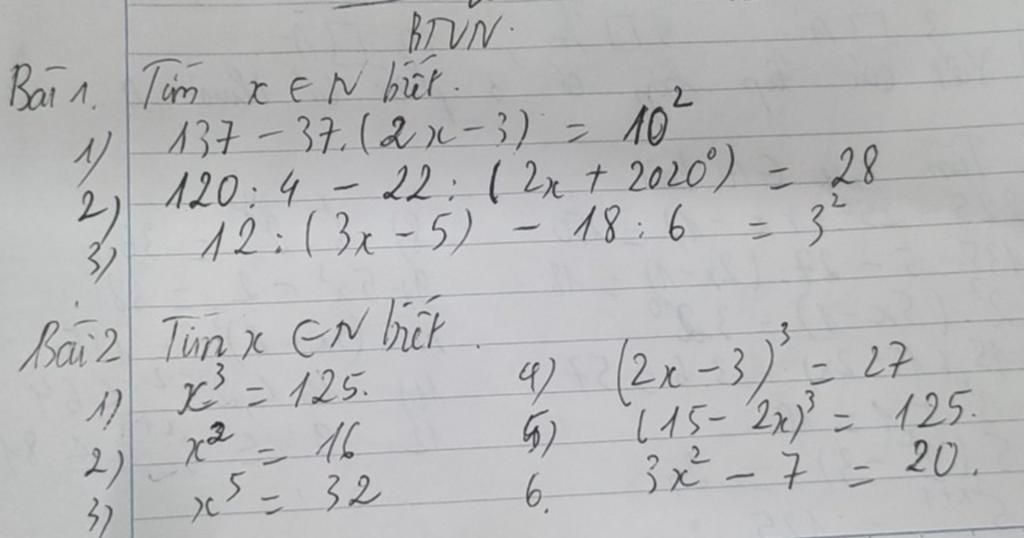 BTVN.
Bài 1. Tìm x ∈ N biết.
1) 137 - 37.(2x - 3) = 10²
2) 120 : 4 - 22 : (2x + 2020⁰) = 28
3) 12 : (3x - 5) - 18 : 6 = 3²
Bài 2 Tìm x ∈ N biết.
1) x³ = 125. 4) (2x - 3)³ = 27
2) x² = 16 5) (15 - 2x)³ = 125.
3) x⁵ = 32 6. 3x² - 7 = 20.